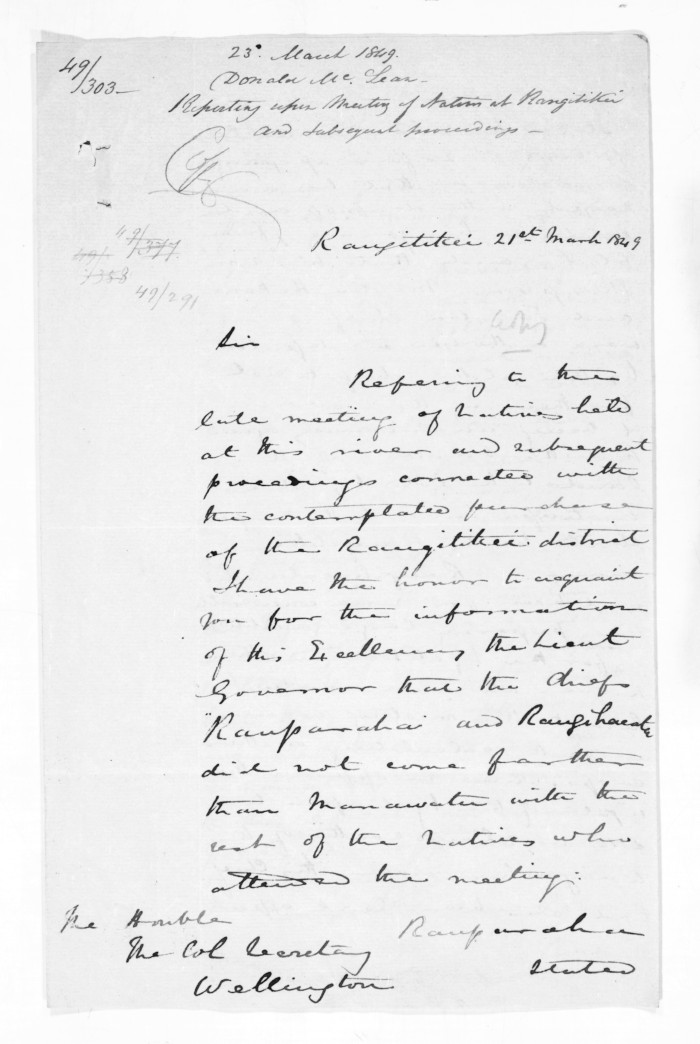 49/303-
23d. March 1849.
Donald Mc. Lean-
Reporting upon Meeting of Natives at Rangitikei
and subsequent proceedings-
Copy
49/377.
49/358
49/291
Rangitikei 21st March 1849
Copy
Sir
Refering to the
late meeting of Natives held
at this river and subsequent
proceedings connected with
the contemplated purchase
of the Rangitikei district
I have the honor to acquaint
you for the information
of His Excellency the Lieut
Governor that the chiefs
"Rauparahai and Rangihaeata
did not come farther
than Manawatu with the
rest of the Natives who
attended the meeting:
Rauparaha
stated
The Honble
The Col Secretary
Wellington